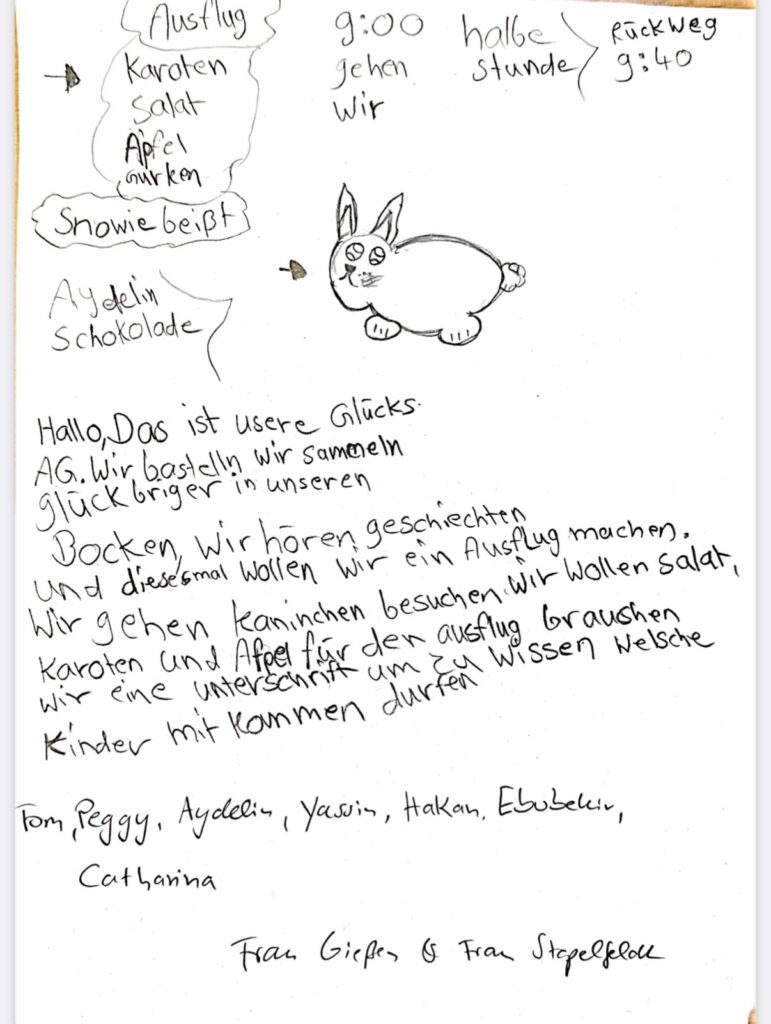 Ausflug
Karoten
Salat
Äpfel
Gurken
9:00
gehen
wir
halbe
stunde
Rückweg
9:40
Snowie beißt
Aydelin
Schokolade
Hallo, Das ist usere Glücks-
AG. Wir bastelln wir sammeln
glückbriger in unseren
Bocken, wir hören geschiechten
und diesesmal wollen wir ein Ausflug machen.
Wir gehen kaninchen besuchen. wir wollen salat,
karoten und Äfpel für den ausflug braushen
wir eine unterschrift um zu wissen welsche
Kinder mit kommen durfen
Tom, Peggy, Aydelin, Yassin, Hakan, Ebubekir,
Catharina
Frau &  Frau